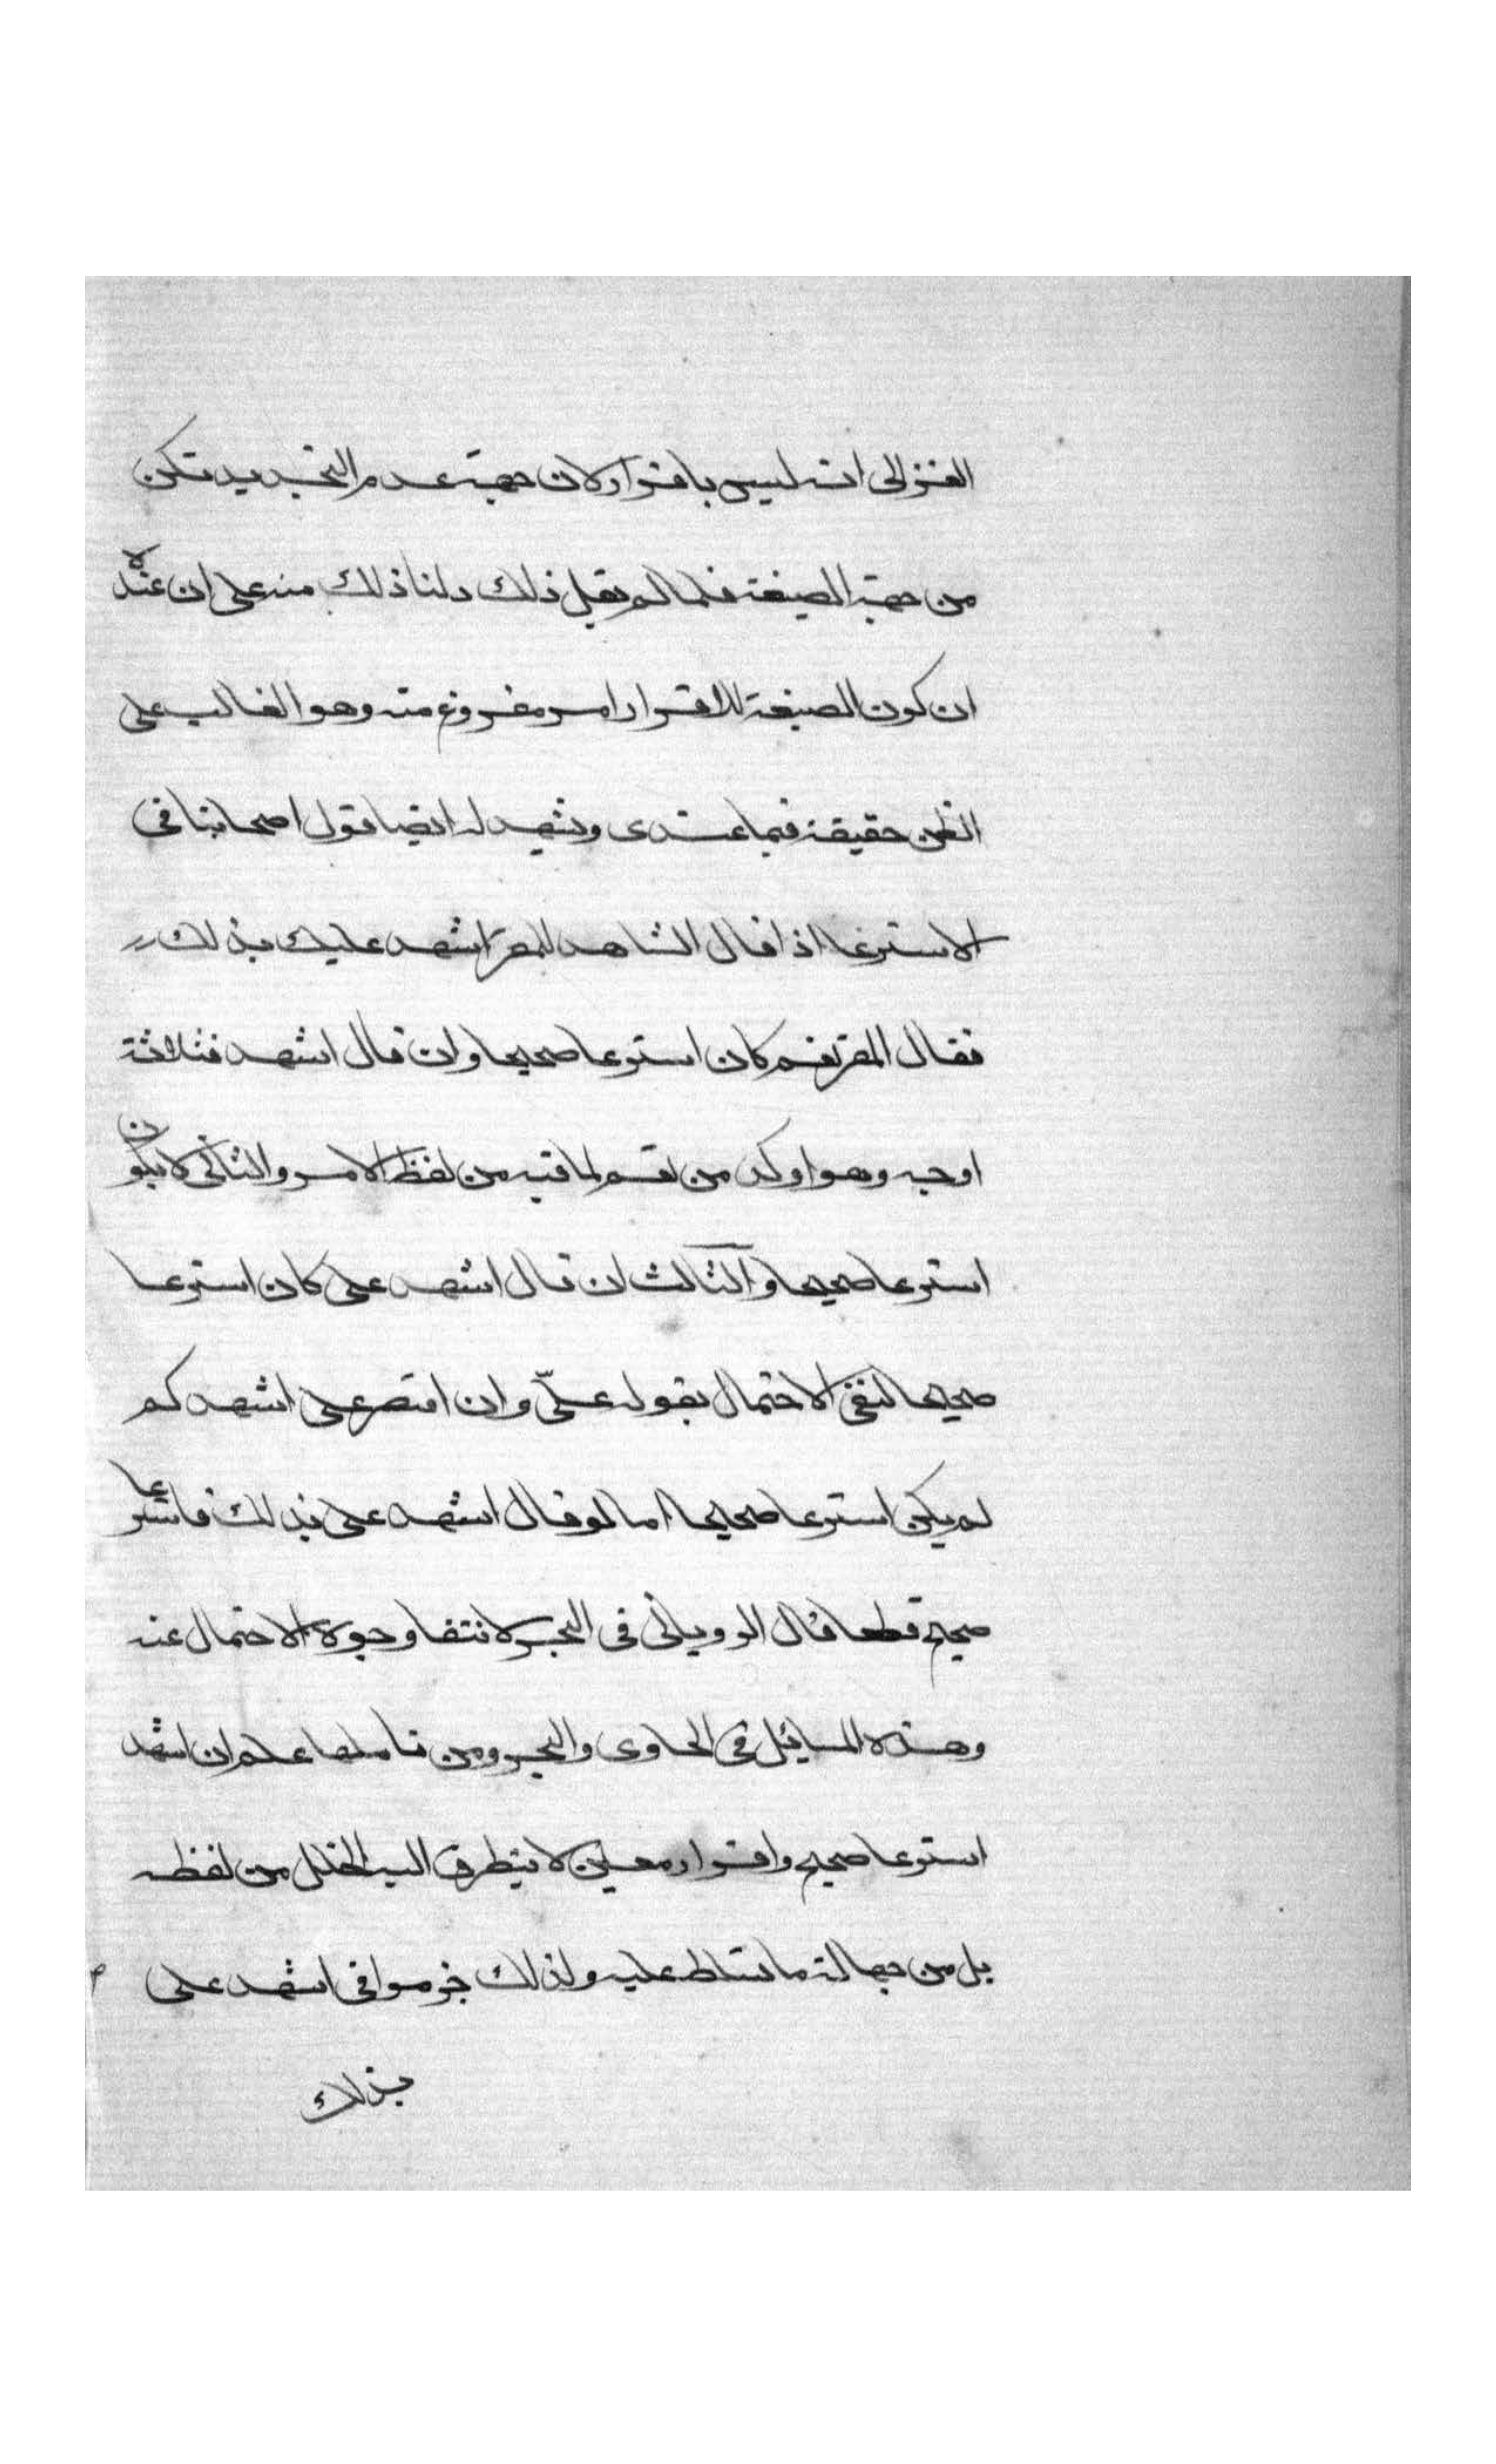 الغزالى انه ليس باقرار لان جهة عدم التحديد تكن
من جهة الصيغة فلما لم يقل ذلك دلنا ذلك منه على ان عنده
ان كون الصيغة للاقرار امر مفروغ منه وهو الغالب على
الظن حقيقة فيما عندى ويشهد له ايضا قول اصحابنا فى
الاسترعا اذا قال الشاهد للمقر اشهد عليك بذلك
فقال المقر نعم كان استرعا صحيحا وان قال اشهد فثلاثة
اوجه وهو اوكد من نعم لما فيه من لفظ الامر والثانى لا يكون
استرعا صحيحا والثالث ان قال اشهد على كان استرعا
صحيحا لنفى الاحتمال بقوله علىّ وان اقتصر على اشهد كم
لم يكن استرعا صحيحا اما لو قال اشهد على بذلك فاسترعا
صحيح قطعا قال الرويانى فى البحر لانتفا وجوه الاحتمال عنه
وهذه المسائل فى الحاوى والبحر ومن تاملها علم ان اشهد
استرعا صحيح واقرار معين لا يتطرق اليه الخلل من لفظه
بل من جهالة ما تسلط عليه ولذلك جزموا فى اشهد على
بذلك